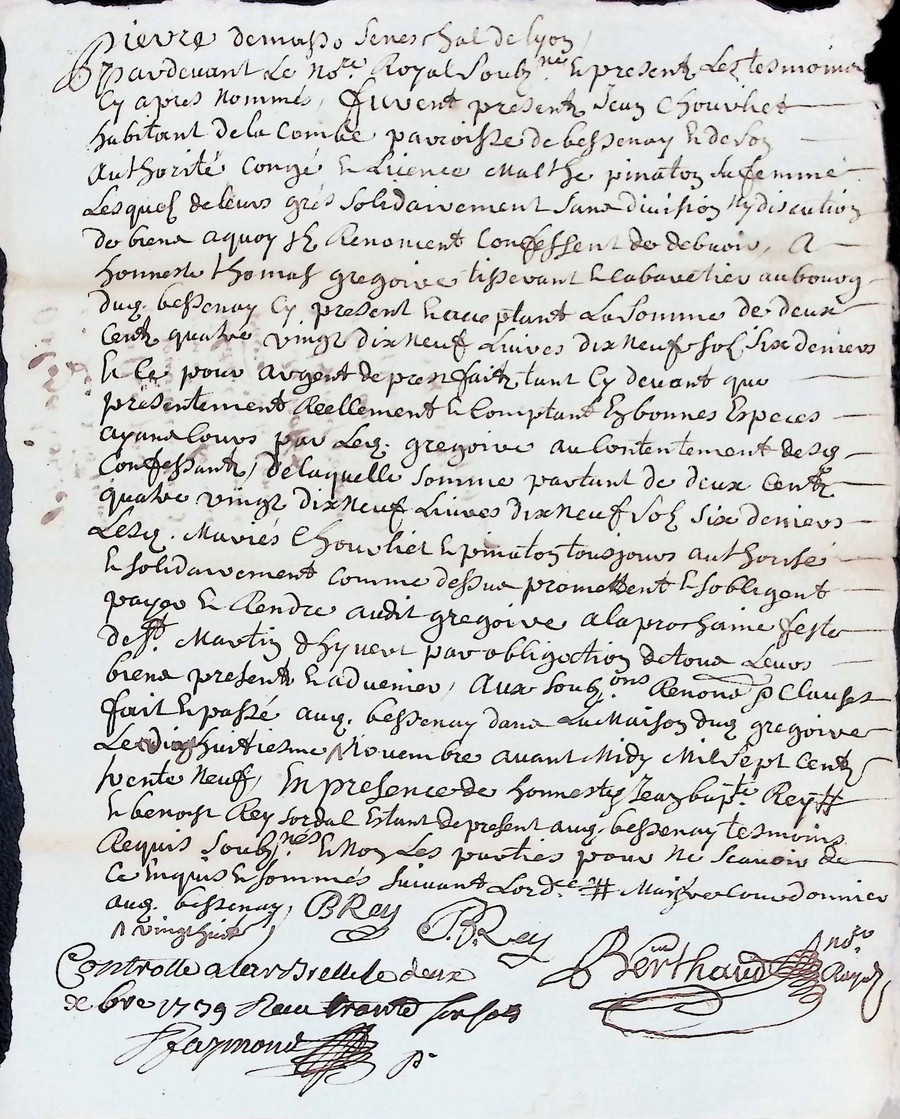 Pierre demasso Seneschal de Lyon
Pardevant Le No.re Royal Soubz.né & present Les tesmoins
Cy apres Nommés, furent presentz Jean Chourliet
habitant de la Combe parroisse de bessenay & de son
authorité Congé & Licence Malthe pinaton sa femme
Lesquelz de leurs grés solidairement sans division Ny discution
de biens a quoy Ilz Renoncent Confessent de debvoir, A
honneste thomas gregoire tisserant & Cabaretier au bourg
dug. bessenay Cy present & acceptant La Somme de deux
Centz quatre vingt dix Neuf Livres dix Neuf solz Six deniers
& Ce pour argent de prest fait tant Cy devant que
presentement Reellement & Comptant En bonnes Especes
ayans Cours par Led. gregoire au Contentement desd.
Confessantz, de laquelle somme partant de deux Centz
quatre vingt dix Neuf Livres dix Neuf Solz Six deniers
Lesd. Mariés Chourliet & pinaton tousjours authorisé
& solidairement comme dessus promettent & sobligent
payer & Rendre audit gregoire a la prochaine feste
de St. Martin dhyvert par obligation de tous Leurs
biens presentz & advenier, Aux Soubz.ons Renons & Clauses
fait & passé aud. bessenay dans La Maison dud gregoire
Le huitiesme Novembre avant Midy Mil Sept Centz
trente Neuf, En presence de honnestes Jean bapt.te Rey #
& benoist Rey Estant de present aud. bessenay tesmoins
Requis Soubz.nés & Non Les parties pour Ne Scavoir de
Ce Enquis & sommés Suivant Lord.ce # Maistre Courdonnier
aud. bessenay, BRey J.B. Rey
^ vingt huit
Berthaud no.re Royal
Controlle a Larbrelle le deux
de bre 1739 Receu trante six solz
Raymond